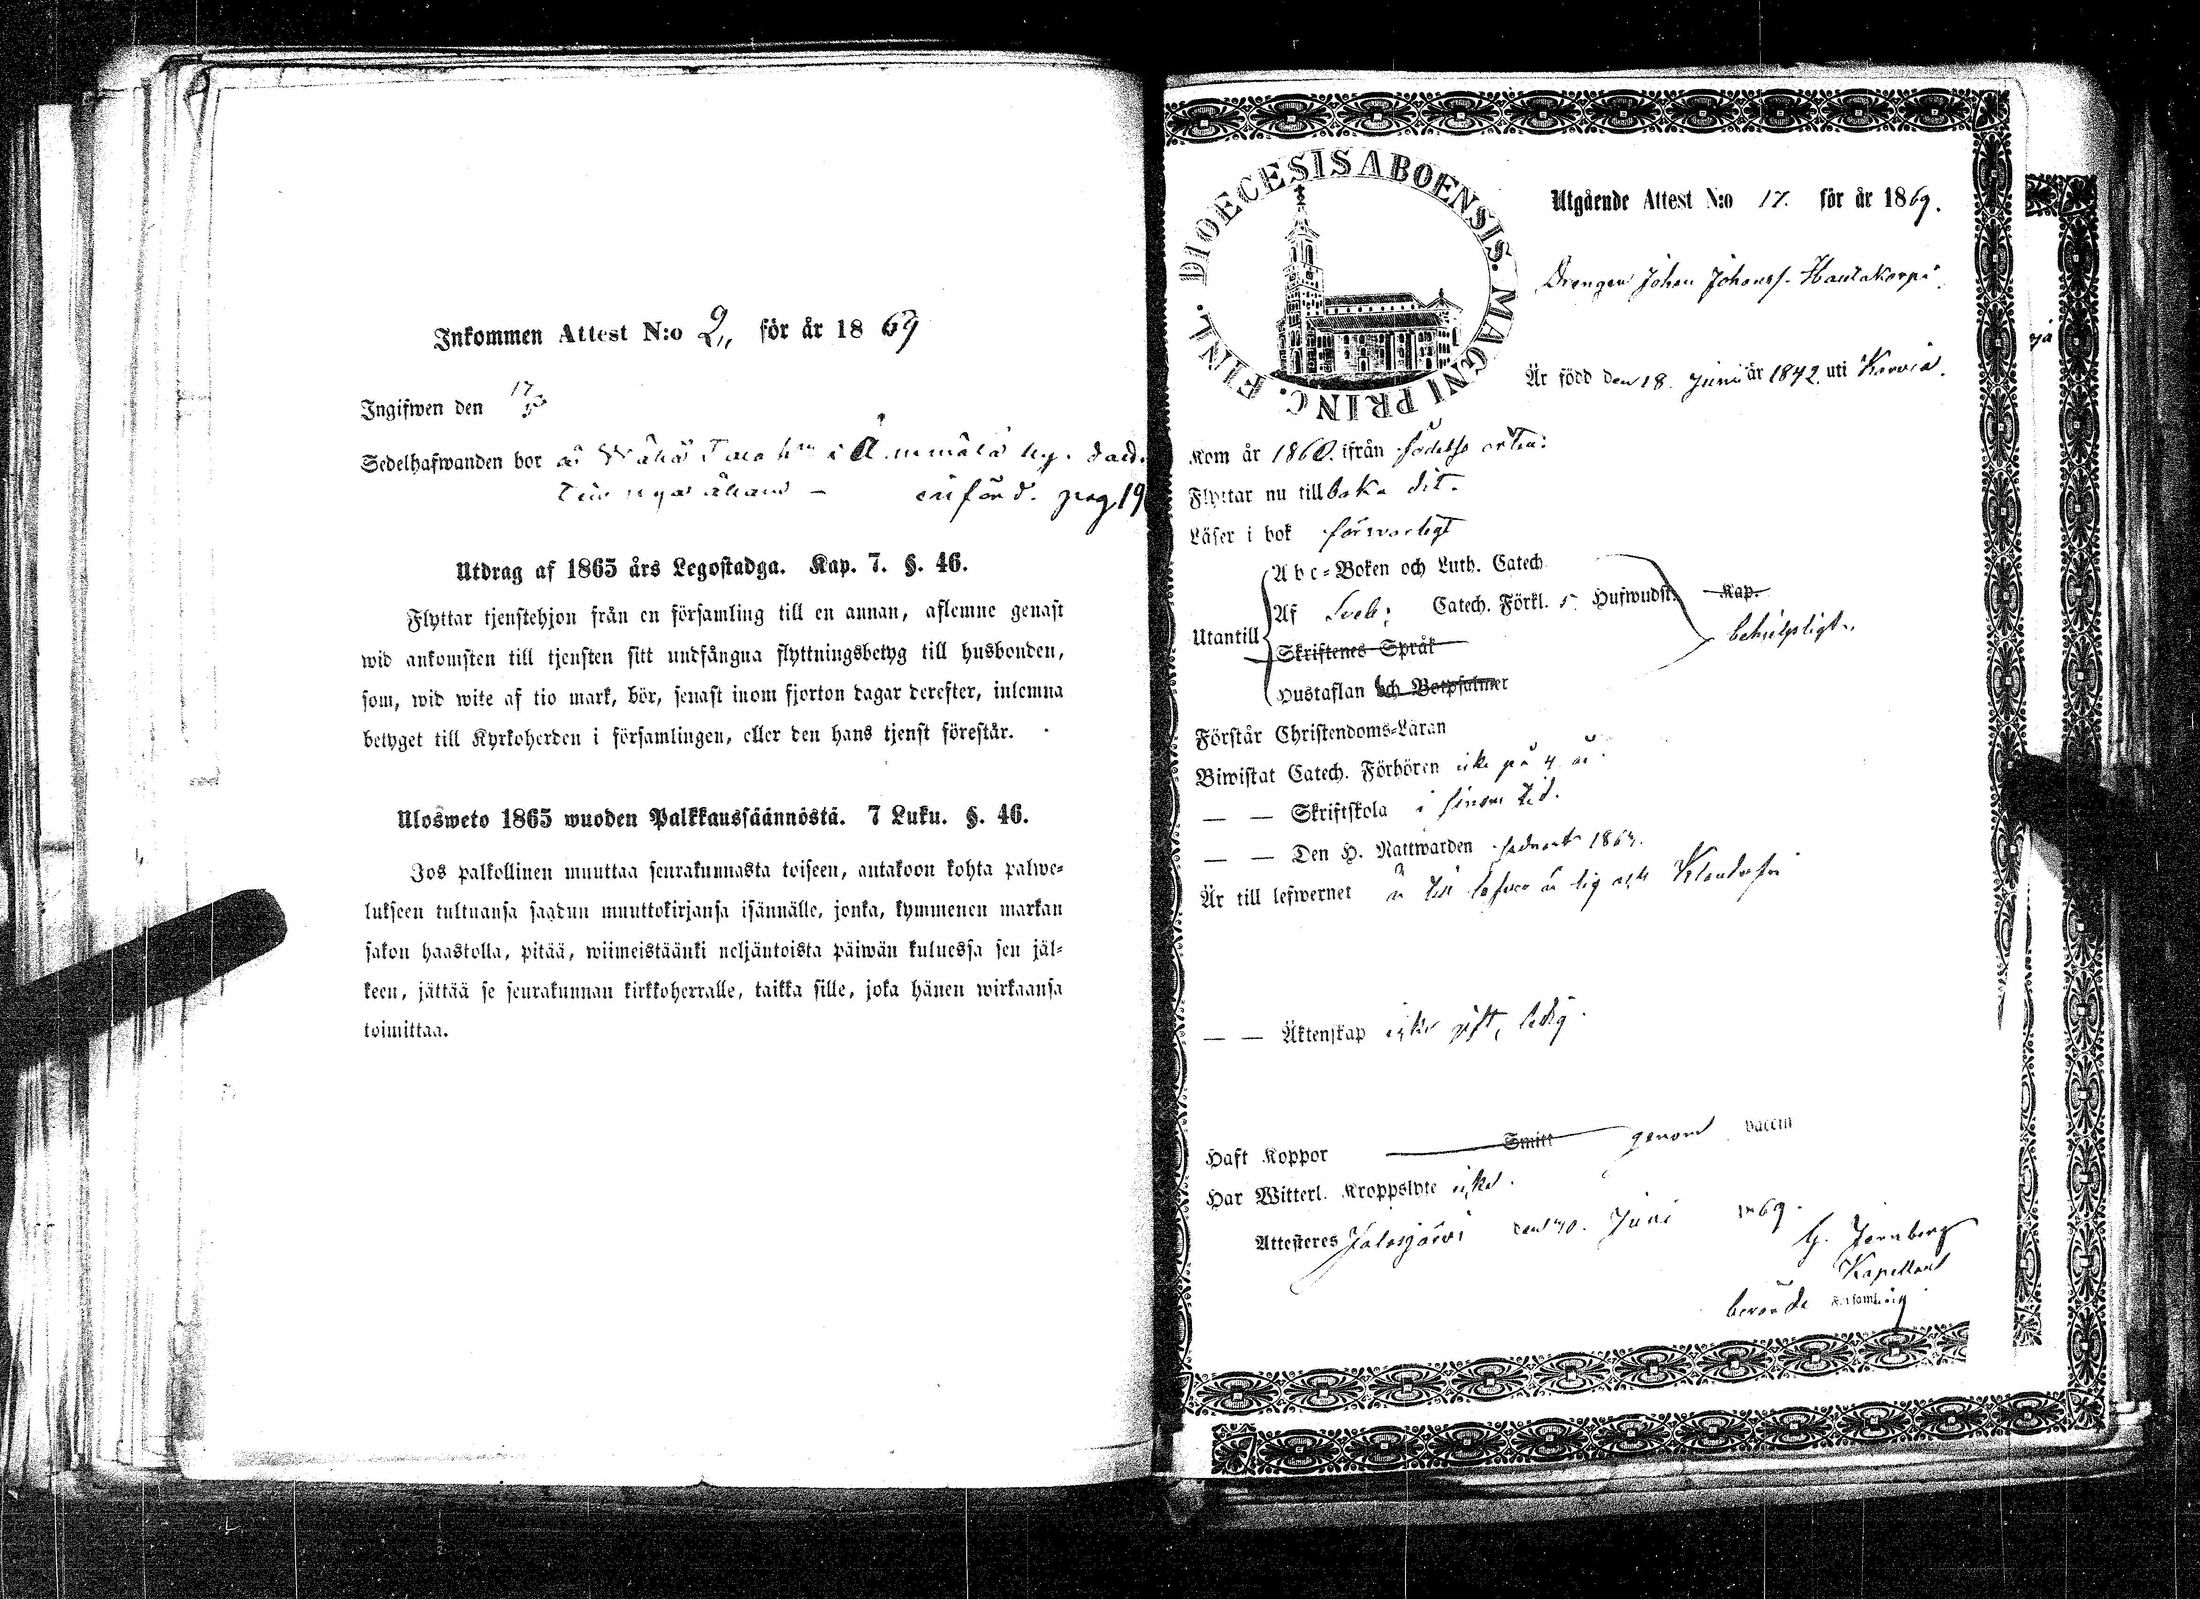 Inkommen Attest N:o 2,, för år 1869
Ingifwen den 17/
Sedelhafwanden bor å i by.
införd. pag 19
Utdrag af 1865 års Legostadga. Kap. 7. §. 46.
Flyttar tjenstehjon från en församling till en annan, aflemne genast
wid ankomsten till tjensten sitt undfångna flyttningsbetyg till husbonden,
som, wid wite af tio mark, bör, senast inom fjorton dagar derefter, inlemna
betyget till Kyrkoherden i församlingen, eller den hans tjenst förestår.
Ulosweto 1865 wuoden Palkkaussäännöstä. 7 Luku. §. 46.
Jos palkollinen muuttaa seurakunnasta toiseen, antakoon kohta palwe-
lukseen tultuansa saadun muuttokirjansa isännälle, jonka, kymmenen markan
sakon haastolla, pitää, wiimeistäänki neljäntoista päiwän kuluessa sen jäl-
keen, jättää se seurakunnan kirkkoherralle, taikka sille, joka hänen wirkaansa
toimittaa.
DIOECESIS ABOENSIS. MAGNI PRINC. FINL.
Utgående Attest N:o 17. för år 1869.
Drengen Johan Johanss. Hautakorpi
Är född den 18. Juni år 1842. uti Karvia.
Kom år 1860. ifrån födelse orten:
Flyttar nu tillbaka dit.
Läser i bok försvarligt
Utantill
Abc-Boken och Luth. Catech.
Af Sveb: Catech. Förkl. 5 Hufwudst. Kap.
Skriftenes Språk
Hustaflan och Botpsalmer
behielpligt.
Förstår Christendoms-Läran
Biwistat Catech. Förhören icke på 4 år.
— — Skriftskola i sinom tid.
— — Den H. Nattwarden sednast
Är till lefwernet
— — Äktenskap icke gift, ledig.
Haft Koppor Smitt genom vaccin
Har Witterl. Kroppslyte icke.
Attesteres Jalasjärvi den Juni 1869.
Kapellant
berörde Församling